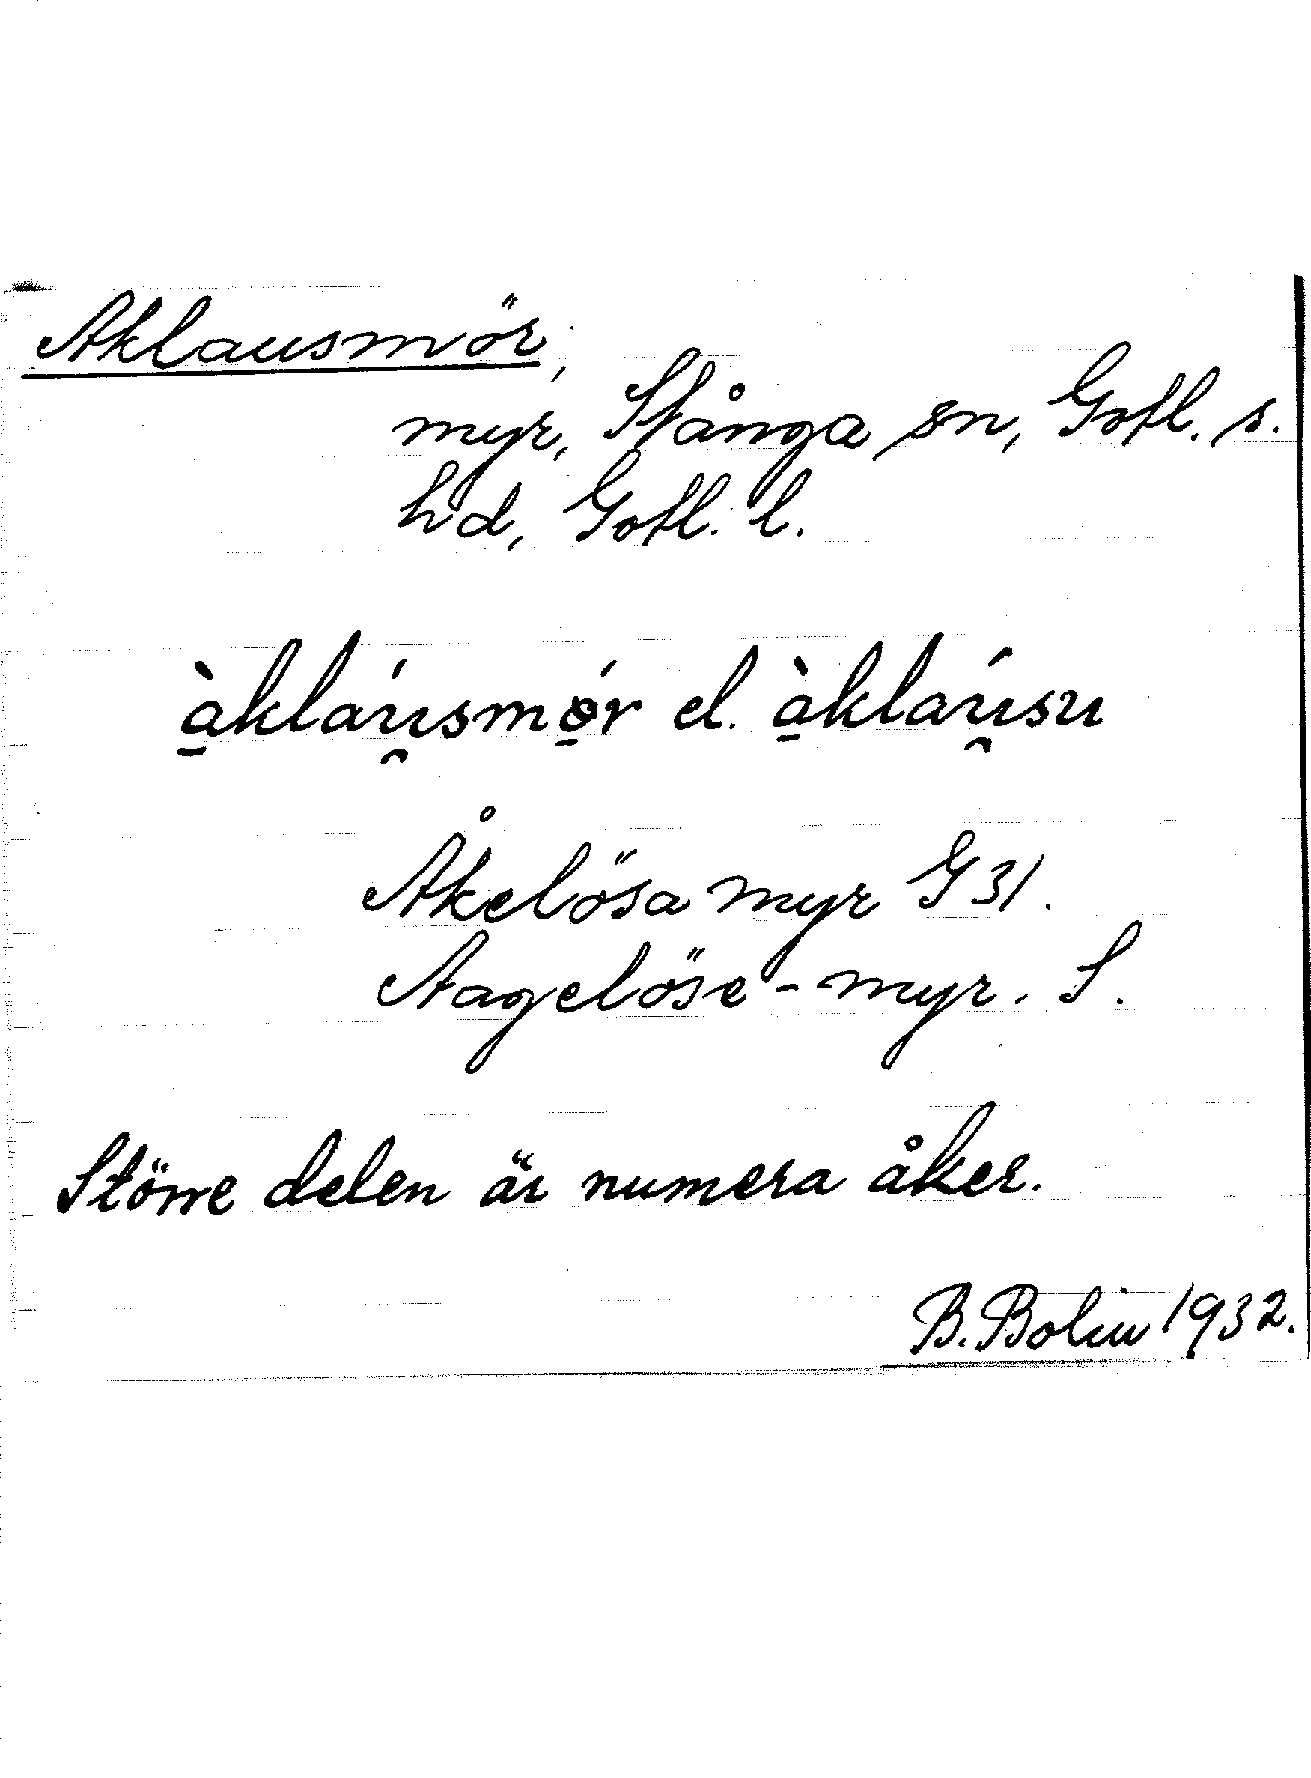 Aklausmör,
myr, Stånga sn, Gotl. s.
hd, Gotl. l.
à̱kláu̯smǿ̱r el. à̱kláu̯su
Åkelösa myr G 31.
Aagelöse-myr. S.
Större delen är numera åker.
B. Bolin 1932.